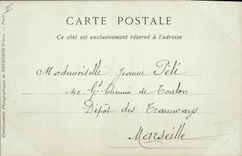 CARTE POSTALE
Ce côté est exclusivement réservé à l'adresse
Mademoiselle Jeanne Pélé
40 Gd Chemin de Toulon
Dépôt des Tramways
Marseille
Etablissements Photographiques de NEURDEIN Frères. — Paris